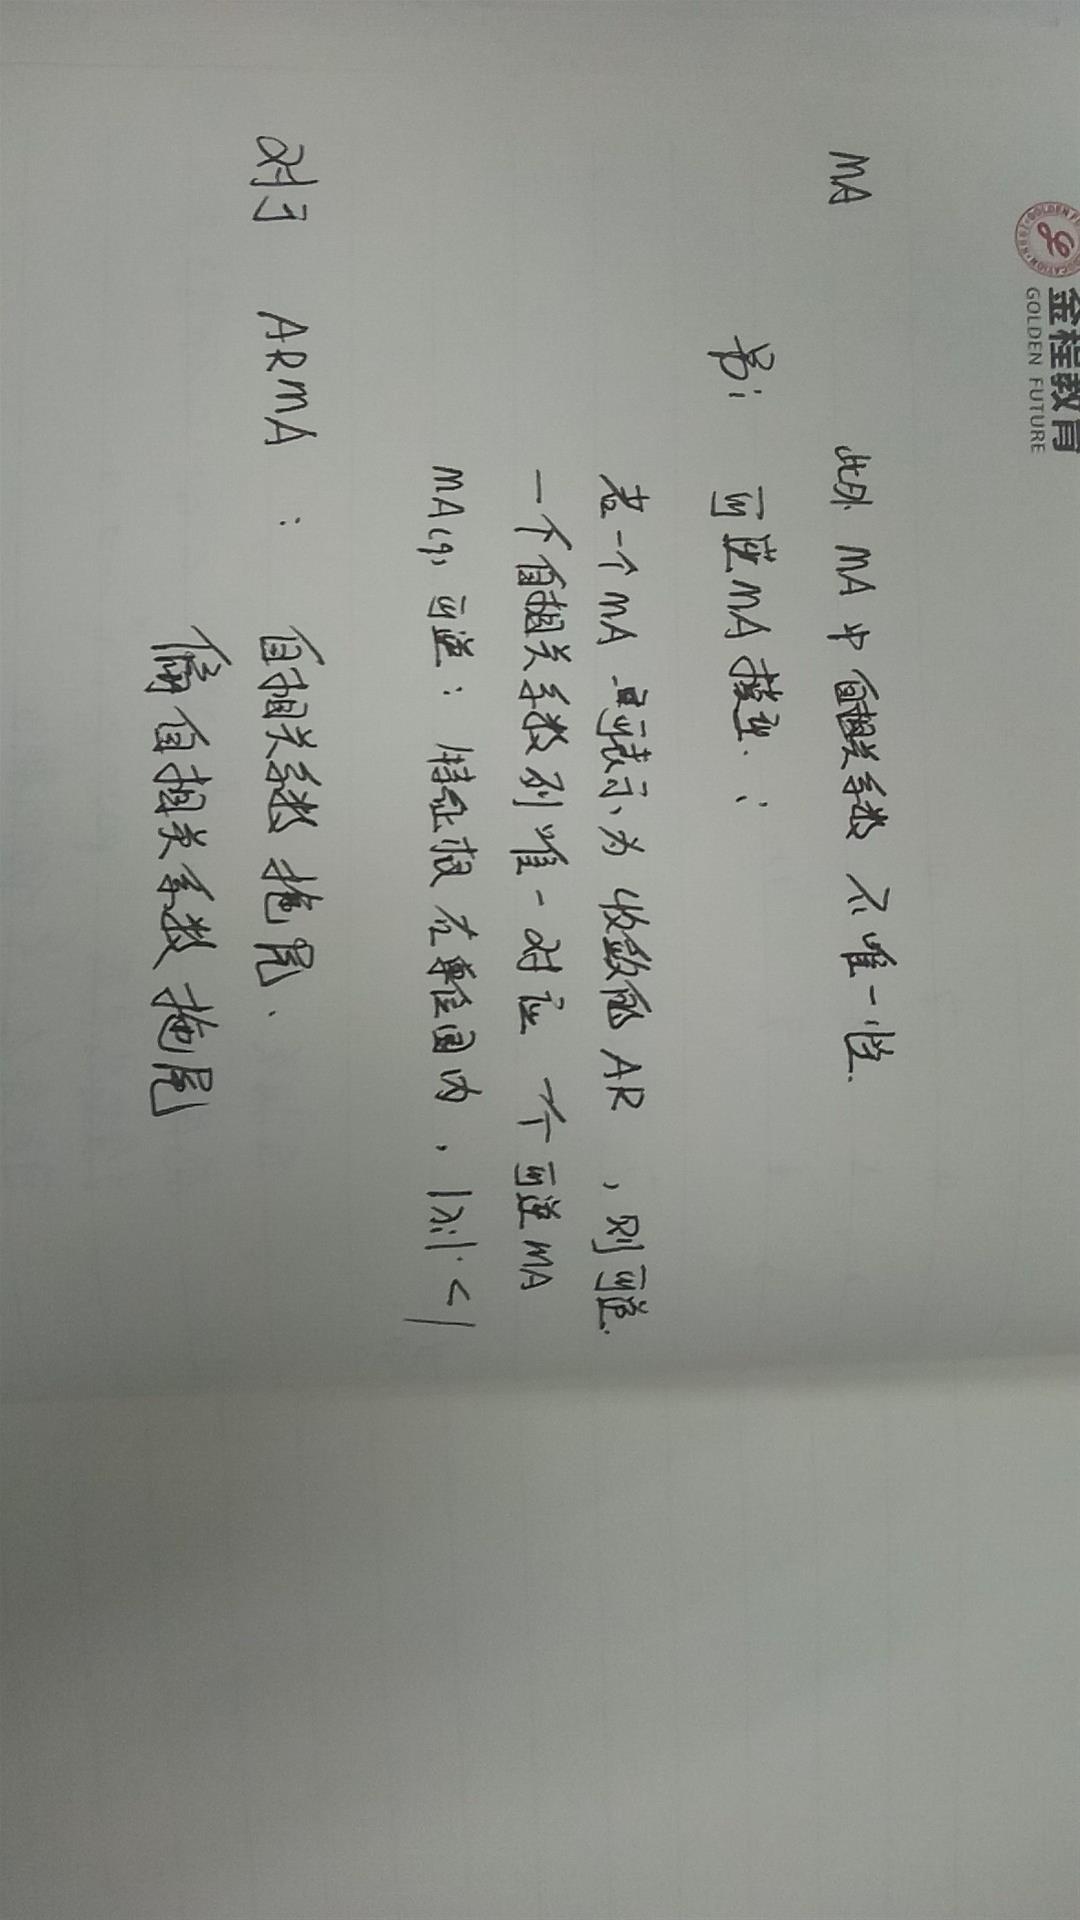 金程教育
GOLDEN FUTURE
MA 此外 MA 中自相关系数不唯一性.
另: 可逆MA模型:
若一个MA 可表示为收敛的AR,则可逆.
一个自相关系数列唯一对应一个可逆MA
MA(q)可逆: 特征根在单位圆内, |λi|<1
对于 ARMA: 自相关系数拖尾.
偏自相关系数拖尾